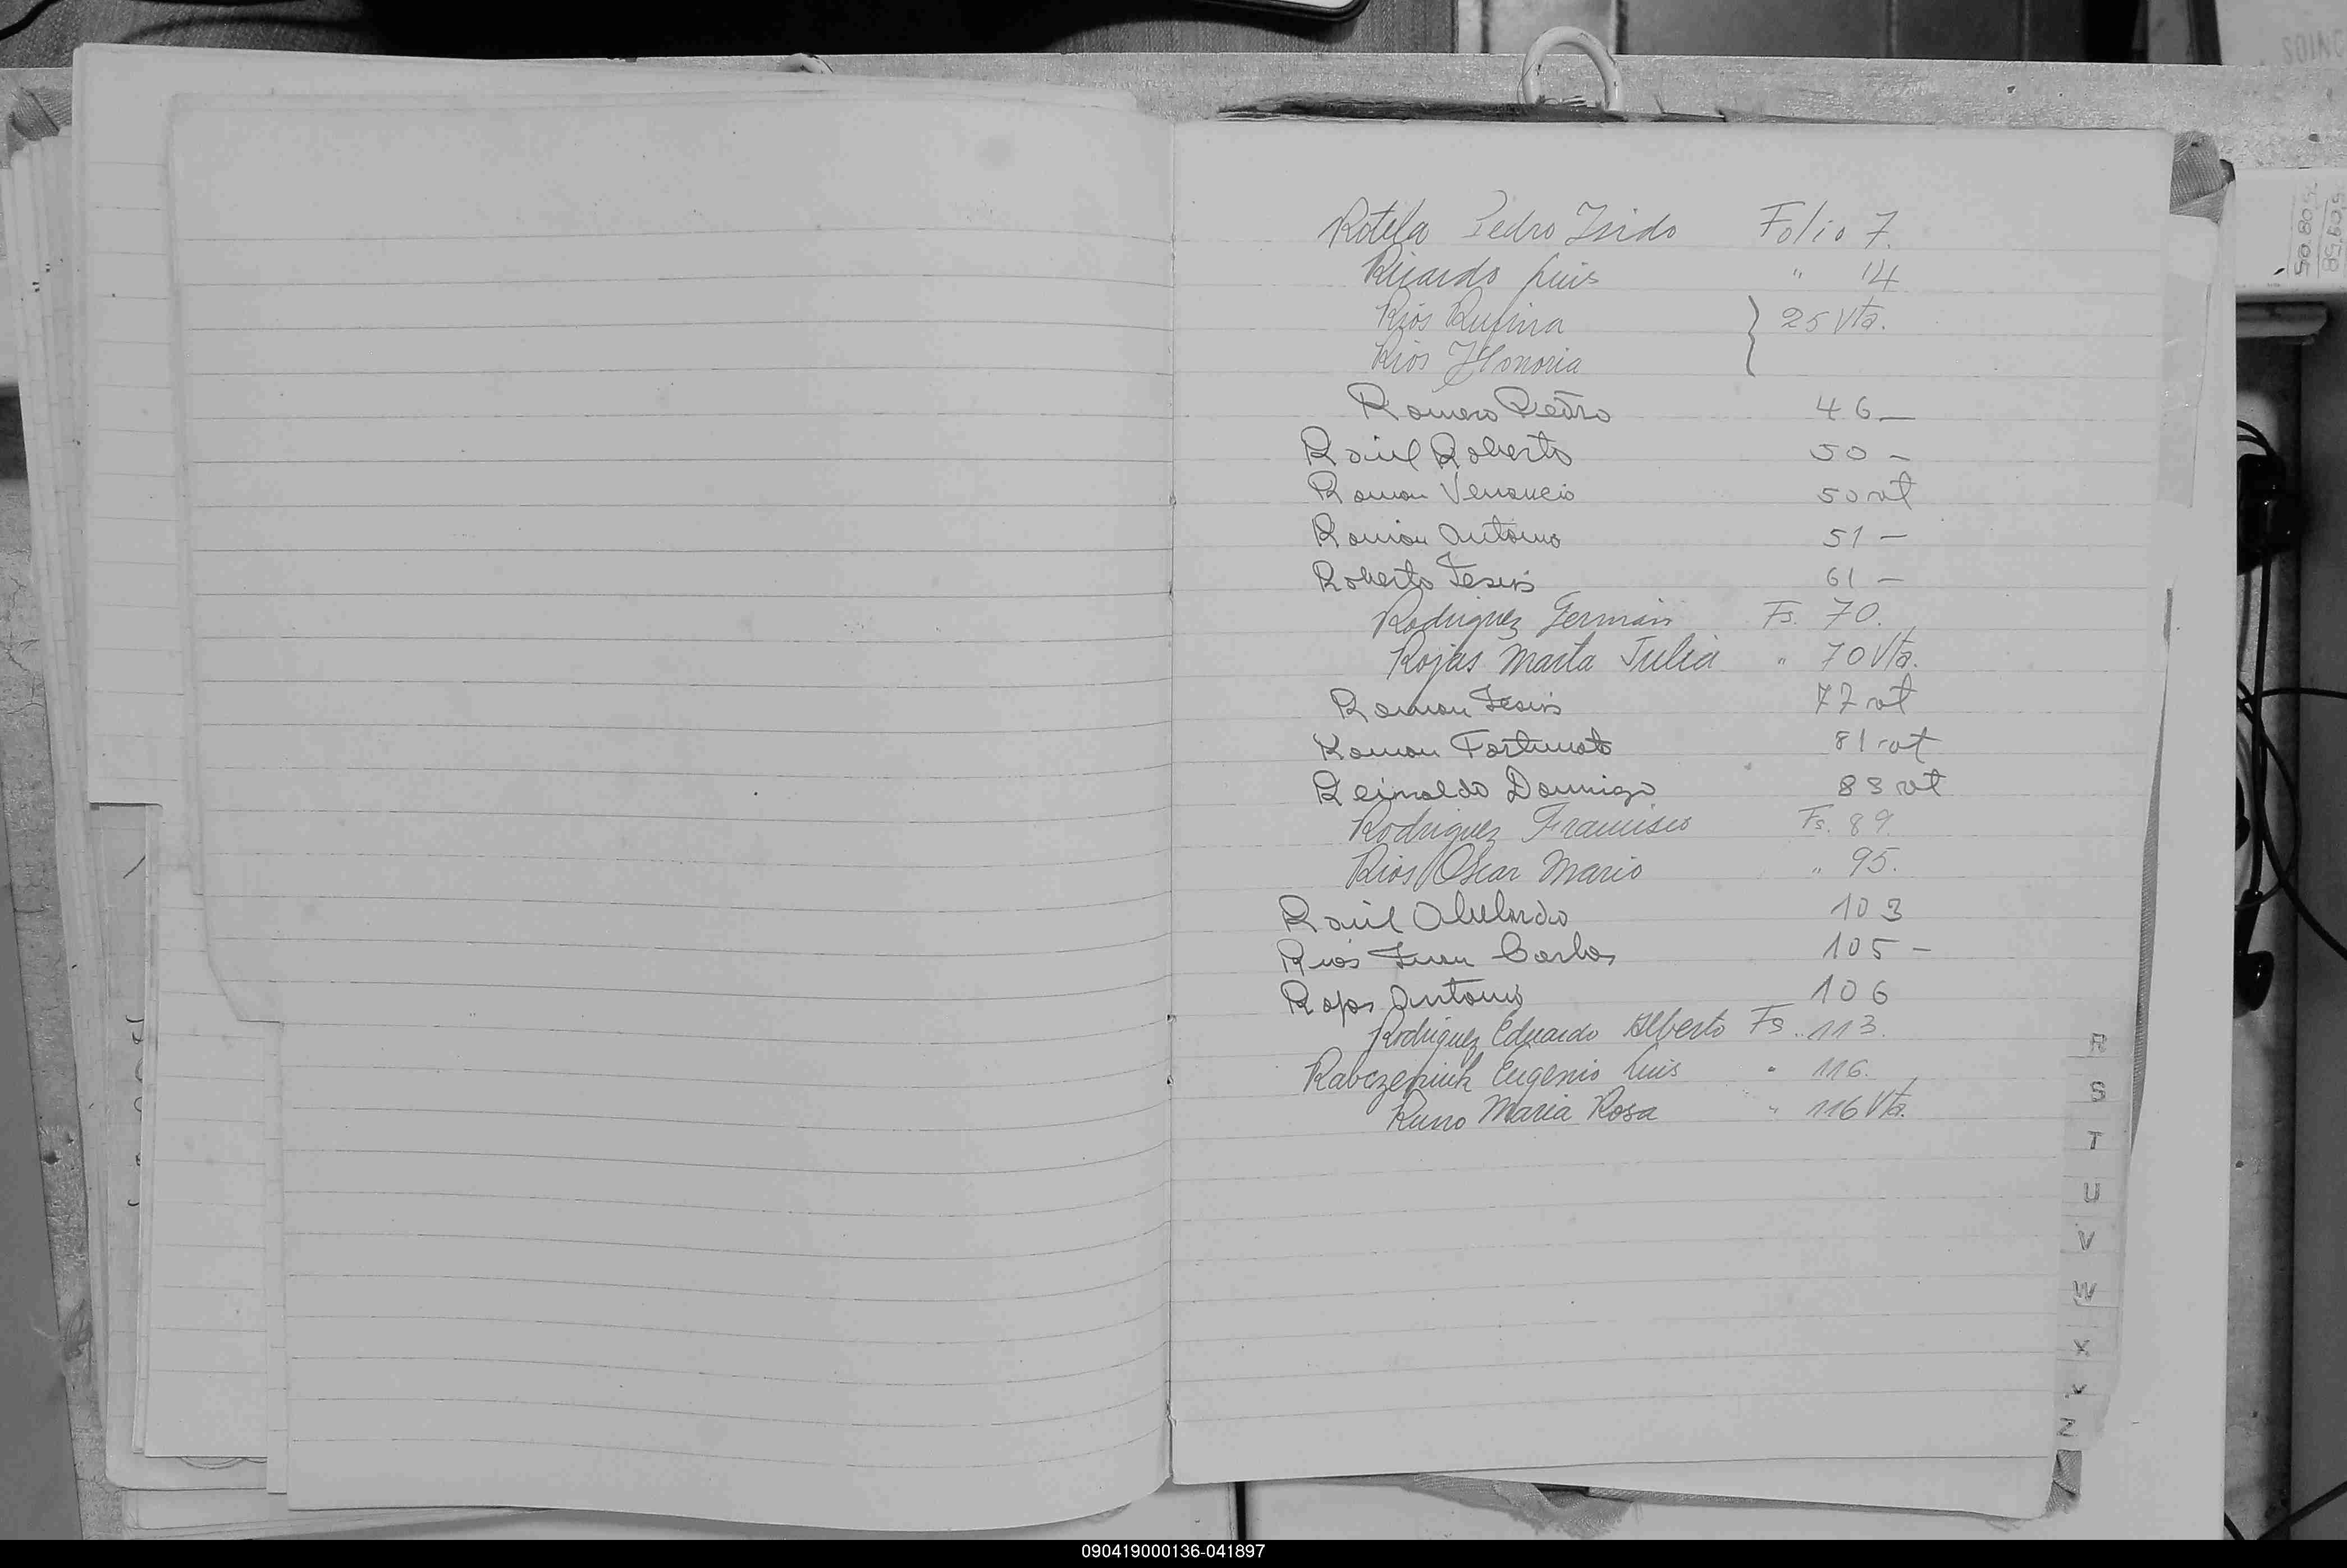 Rotela Pedro Isido Folio 7.
Ricardo Luis " 14
Rios Rufina } 25 Vta.
Rios Honoria
Romero Pedro 46 —
Raúl Roberto 50 —
Ramon Venancio 50 vt
Ramón Antonio 51 —
Roberto Jesús 61 —
Rodriguez Germán Fs. 70.
Rojas Marta Julia " 70 Vta.
Ramon Jesús 77 vt
Ramon Fortunato 81 vt
Reinaldo Domingo 83 vt
Rodriguez Francisco Fs. 89.
Rios Oscar Mario " 95.
Raúl Abelardo 103
Rios Juan Carlos 105 —
Rojas Antonio 106
Rodriguez Eduardo Alberto Fs. 113.
Rabczeniuk Eugenio Luis " 116.
Russo Maria Rosa " 116 Vta.
R
S
T
U
V
W
X
Y
Z
090419000136-041897